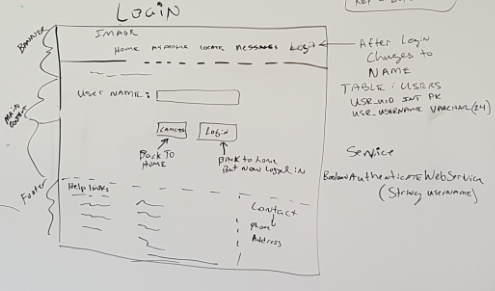 LOGIN
BANNER
IMAGE
HOME MY PROFILE LOCATE MESSAGES Login
After Login
Changes to
NAME
TABLE: USERS
USR_UID INT PK
USR_USERNAME VARCHAR(24)
USER NAME:
MAIN
CONTENT
CANCEL Login
BACK TO
HOME
BACK to home
But NOW Logged iN
Service
Boolean AuthenticateWebService
(String username)
Footer
Help Links
Contact
Phone
Address